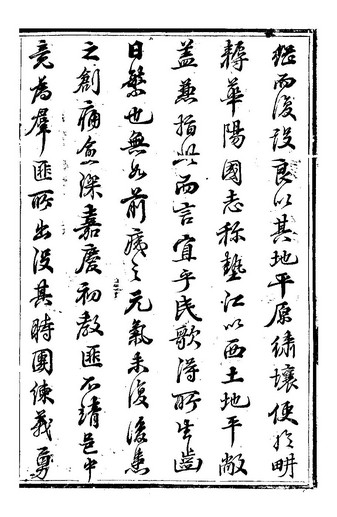 縣而復設良以其地平原繡壤便於畊
耨華陽國志稱墊江以西土地平敞
蓋兼指此而言宜乎民歌得所生齒
日繁也無如前痍之元氣未復後患
之創痛愈深嘉慶初教匪不靖邑中
竟為羣匪所出沒其時團練義勇